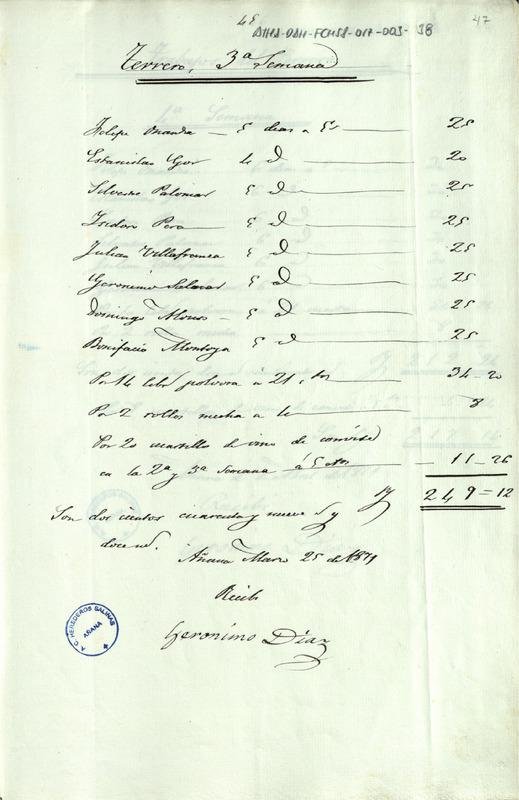 48
47
ATHA-DAH-FCHSS-017-003-38
Terrero, 3ª Semana
Felipe — 5 dias a 5 r — 25
Estanislao 4 d — 20
Silvestre Palomar 5 d — 25
Isidoro Pera 5 d — 25
Julian Villafranca 5 d — 25
Geronimo Salazar 5 d — 25
Domingo Alonso — 5 d — 25
Bonifacio Montoya 5 d — 25
Por 14 libs polvora á 21 ctos — 34-20
Por 2 rollos mecha a 4 — 8
Por 20 cuartillos de vino de
en la 2ª y 3ª Semana á 5 ctos — 11-26
249=12
Son dos cientos cuarenta y nueve y
doce
Añana Marzo 25 de 1871
Recibi
Geronimo Diaz
A.C. HEREDEROS SALINAS
AÑANA